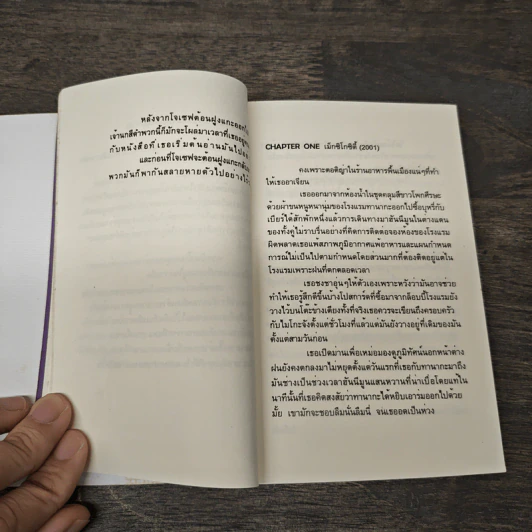 หลังจากโจเซฟต้อนฝูงแกะออกไป
เจ้านกสีดำพวกนี้ก็มักจะโผล่มาเวลาที่เธออยู่
กับหนังสือที่เธอเริ่มต้นอ่านมันไป
และก่อนที่โจเซฟจะต้อนฝูงแกะกลับ
พวกมันก็พากันสลายหายตัวไปอย่าง
CHAPTER ONE เม็กซิโกซิตี้ (2001)
คงเพราะตอติญ่าในร้านอาหารพื้นเมืองแน่ๆที่ทำ
ให้เธออาเจียน
เธอออกมาจากห้องน้ำในชุดคลุมสีขาวโพกศีรษะ
ด้วยผ้าขนหนูหนานุ่มของโรงแรมทานากะออกไปซื้อบุหรี่กับ
เบียร์ได้สักพักหนึ่งแล้วการเดินทางมาฮันนีมูนในต่างแดน
ของทั้งคู่ไม่ราบรื่นอย่างที่คิดการติดต่อจองห้องของโรงแรม
ผิดพลาดเธอแพ้สภาพภูมิอากาศแพ้อาหารและแผนกำหนด
การณ์ไม่เป็นไปตามกำหนดโดยสวนมากที่ต้องติดอยู่แต่ใน
โรงแรมเพราะฝนที่ตกตลอดเวลา
เธอชงชาอุ่นๆให้ตัวเองเพราะหวังว่ามันอาจช่วย
ทำให้เธอรู้สึกดีขึ้นบ้างโปสการ์ดที่ซื้อมาจากล็อบบี้โรงแรมยัง
วางไว้บนโต๊ะข้างเตียงทั้งที่จริงเธอควรจะเขียนถึงครอบครัว
กับไมโกะจังตั้งแต่ชั่วโมงที่แล้วแต่มันยังวางอยู่ที่เดิมของมัน
ตั้งแต่สามวันก่อน
เธอเปิดม่านเพื่อเหม่อมองดูภูมิทัศน์นอกหน้าต่าง
ฝนยังคงตกลงมาไม่หยุดตั้งแต่วันแรกที่เธอกับทานากะมาถึง
มันช่างเป็นช่วงเวลาฮันนีมูนแสนหวานที่น่าเบื่อโดยแท้ใน
นาทีนั้นที่เธอคิดสงสัยว่าทานากะได้หยิบเอาร่มออกไปด้วย
มั้ย เขามักจะชอบลืมนั่นลืมนี่ จนเธออดเป็นห่วง